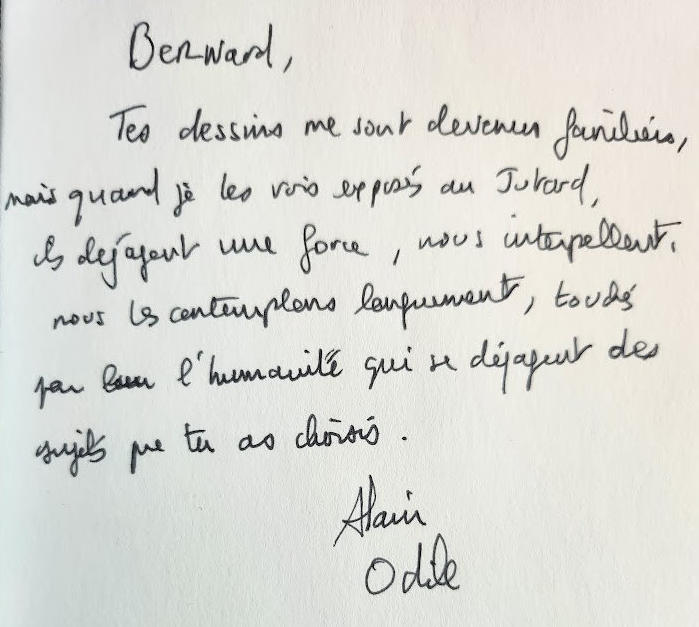 Bernard,
Tes dessins me sont devenus familiers,
mais quand je les vois exposés au Jutard,
ils dégagent une force, nous interpellent.
nous les contemplons longuement, touchés
par l'humanité qui se dégagent des
sujets que tu as choisis.
Alain
Odile